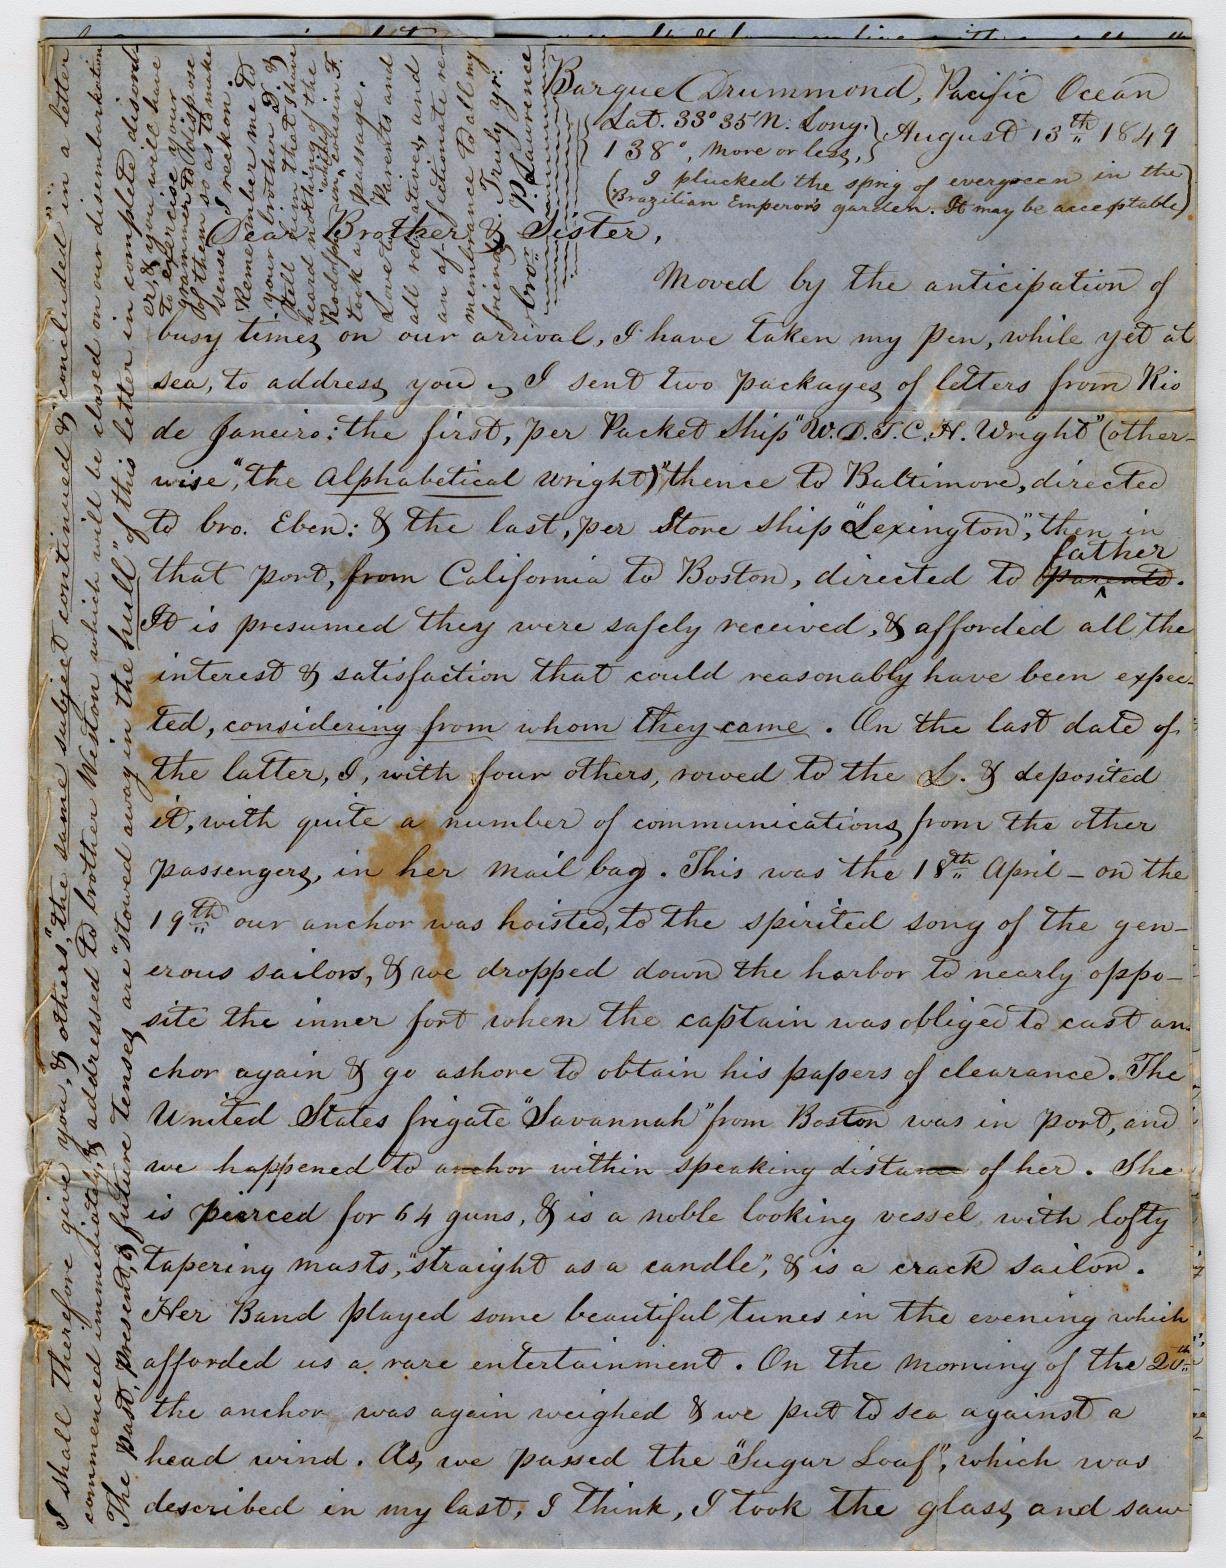 Barque Drummond, Pacific Ocean
Lat. 33° 35' N. Long.
138°, more or less, } August 13th 1849
(I plucked the sprig of evergreen in the
Brazilian Emperor's garden. It may be acceptable)
Dear Brother & Sister,
Moved by the anticipation of
busy times on our arrival, I have taken my pen, while yet at
sea, to address you. I sent two packages of letters from Rio
de Janeiro: the first, per Packet Ship "W.D.T.C.H. Wright" (other-
wise, "the Alphabetical Wright)" thence to Baltimore, directed
to bro. Eben: & the last, per Store Ship "Lexington", then in
that port, from California to Boston, directed to parents father.
It is presumed they were safely received, & afforded all the
interest & satisfaction that could reasonably have been expec-
ted, considering from whom they came. On the last date of
the latter, I, with four others, rowed to the L. & deposited
it, with quite a number of communications from the other
passengers, in her mail bag. This was the 18th April – on the
19th our anchor was hoisted, to the spirited song of the gen-
erous sailors, & we dropped down the harbor to nearly oppo-
site the inner fort when the captain was obliged to cast an-
chor again & go ashore to obtain his papers of clearance. The
United States frigate "Savannah" from Boston was in port, and
we happened to anchor within speaking distance of her. She
is pierced for 64 guns, & is a noble looking vessel with lofty
tapering masts, "straight as a candle", & is a crack sailor.
Her Band played some beautiful tunes in the evening which
afforded us a rare entertainment. On the morning of the 20th
the anchor was again weighed & we put to sea against a
head wind. As we passed the "Sugar Loaf", which was
described in my last, I think, I took the glass and saw
I shall therefore give you, & others, "the same subject continued & concluded" in a letter
commenced immediately, & addressed to brother Weston which will be closed on our disembarkation
The past, present, & future tenses are "stowed away in the hull" of this letter in completed disord-
er, & you will have
to exercise your
grammar & dispose
of them so as to make
sense I reckon.
Remember me to
your brother D. &
tell him that I have
heard nothing of the
in which cousin F.
took a passage.
Love to Parents and
all relatives, and
an affectionate re-
membrance to all my
friends. Truly yr.
bro. P. Laurence